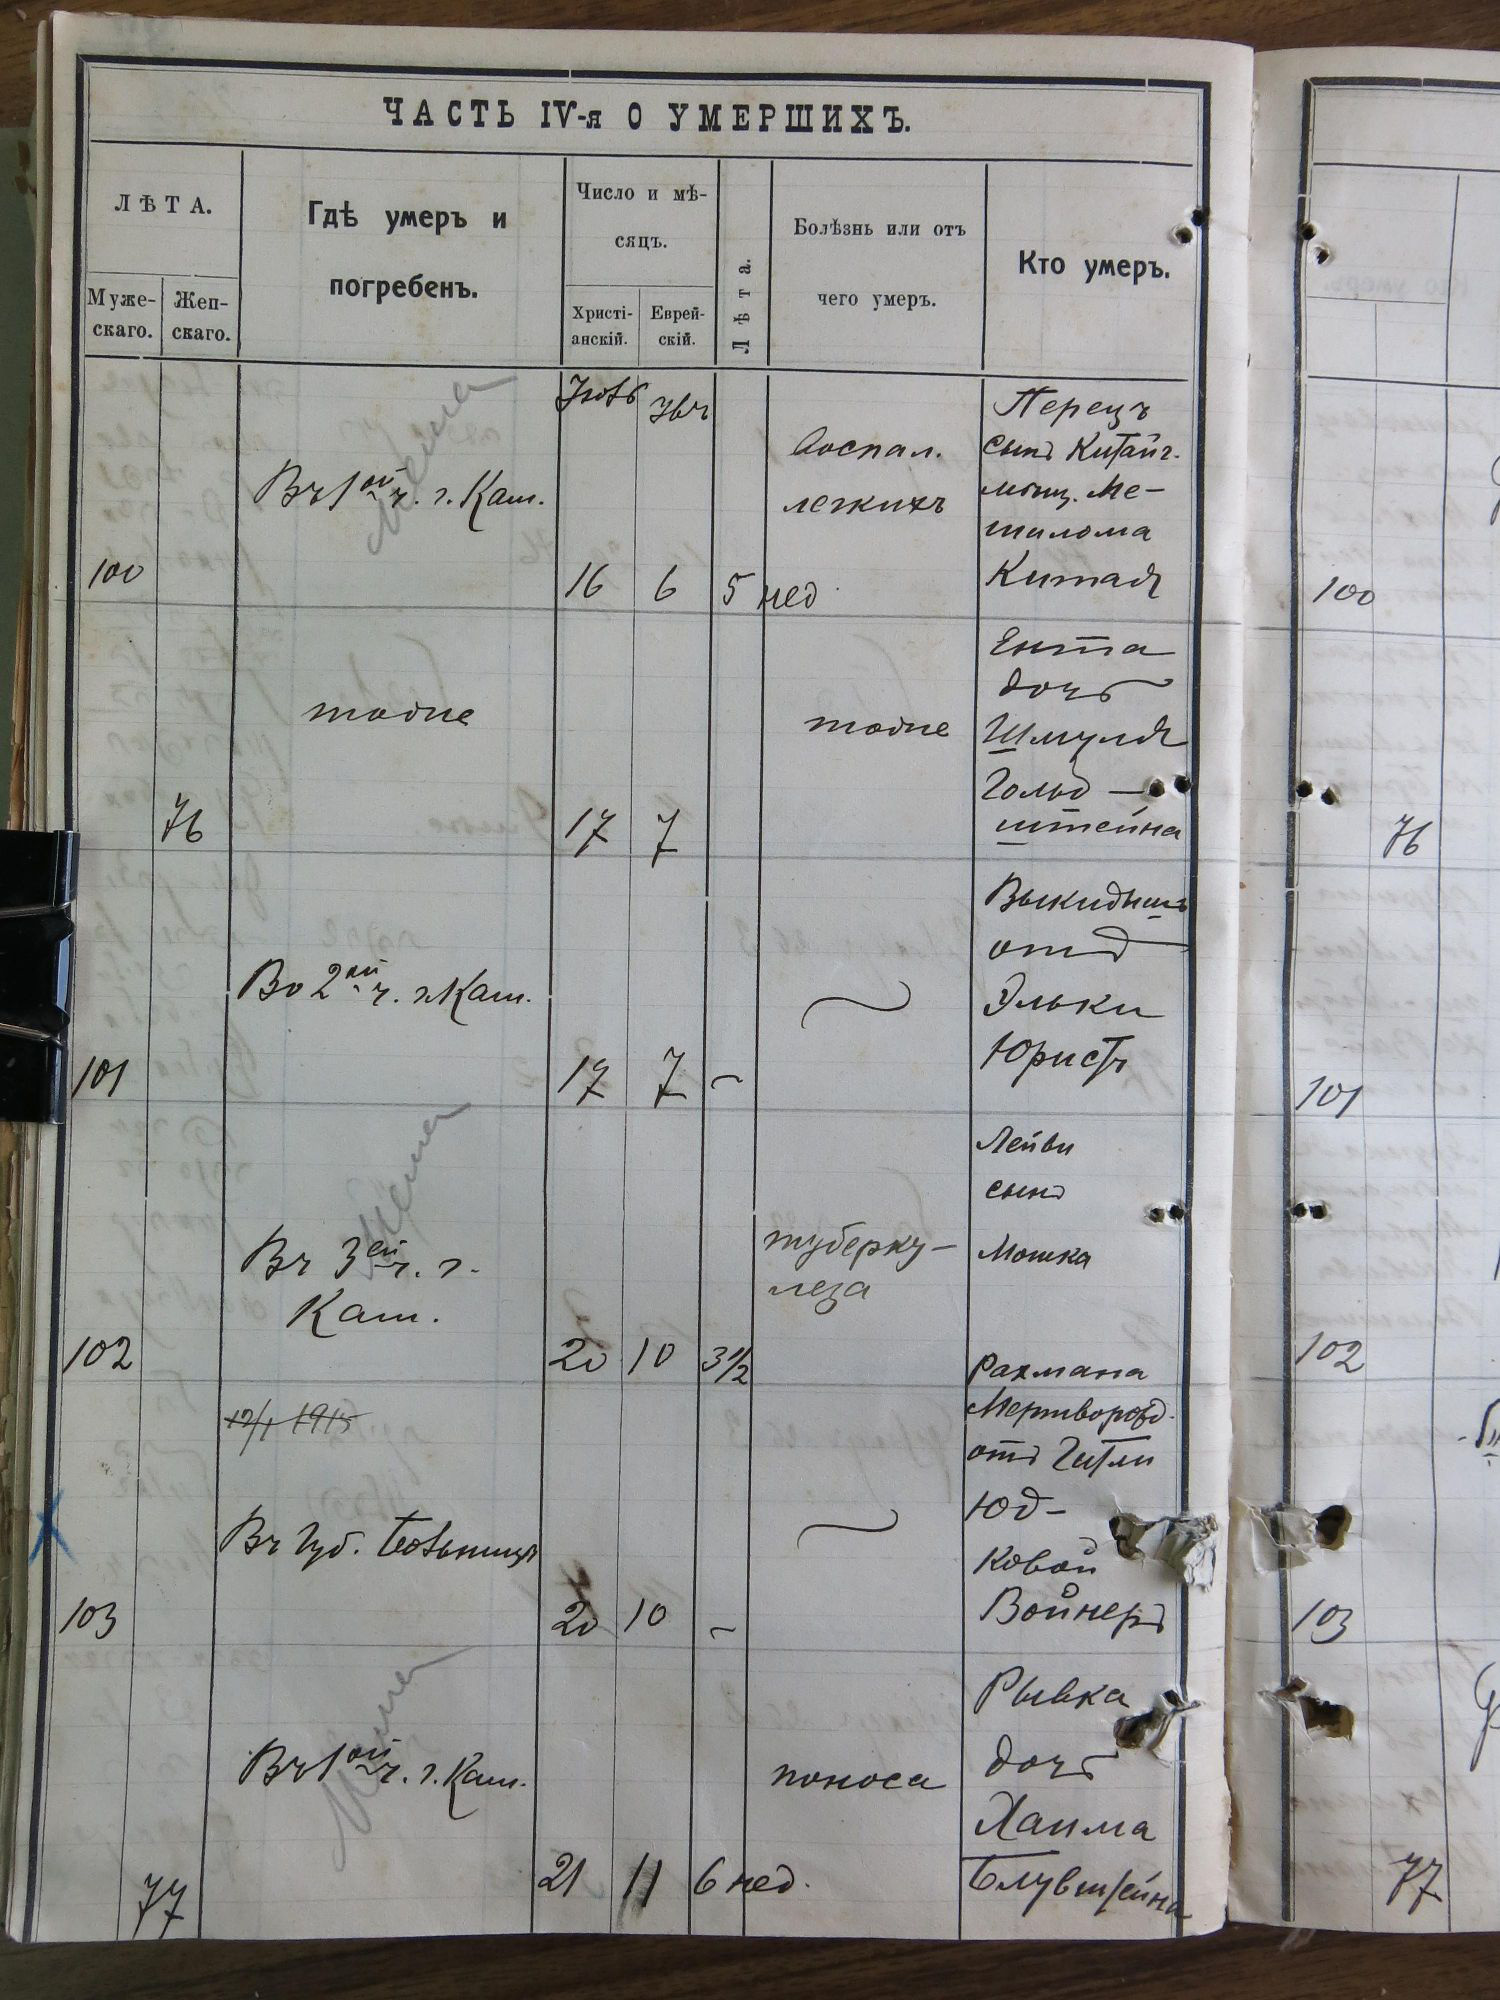 ЧАСТЬ IV-я О УМЕРШИХЪ.
ЛѢТА.
Муже-
скаго.
Жен-
скаго.
Гдѣ умеръ и
погребенъ.
Число и мѣ-
сяцъ.
Христі-
анскій.
Еврей-
скій.
Лѣта.
Болѣзнь или отъ
чего умеръ.
Кто умеръ.
100
Въ 1ой ч. г. Каш.
16
6
5 нед
Воспал.
легкихъ
Перецъ
сынъ
Ме-
шилома
Китая
76
тоже
17
7
тоже
Ента
дочь
Шмуля
Гольд-
штейна
101
Во 2ой ч. г. Каш.
17
7
–
Выкидышъ
отъ
Эльки
Юристъ
102
Въ 3ей ч. г.
Каш.
20
10
3 1/2
туберку-
леза
Лейви
сынъ
Мошка
Рахмана
12/I 1915
103
Въ Губ. Больницѣ
20
10
–
Мертворожд.
отъ Гитли
Юд-
ковой
Войнеръ
77
Въ 1ой ч. г. Каш.
21
11
6 нед.
поноса
Рывка
дочь
Хаима
Блувштейна
100
76
101
102
103
77